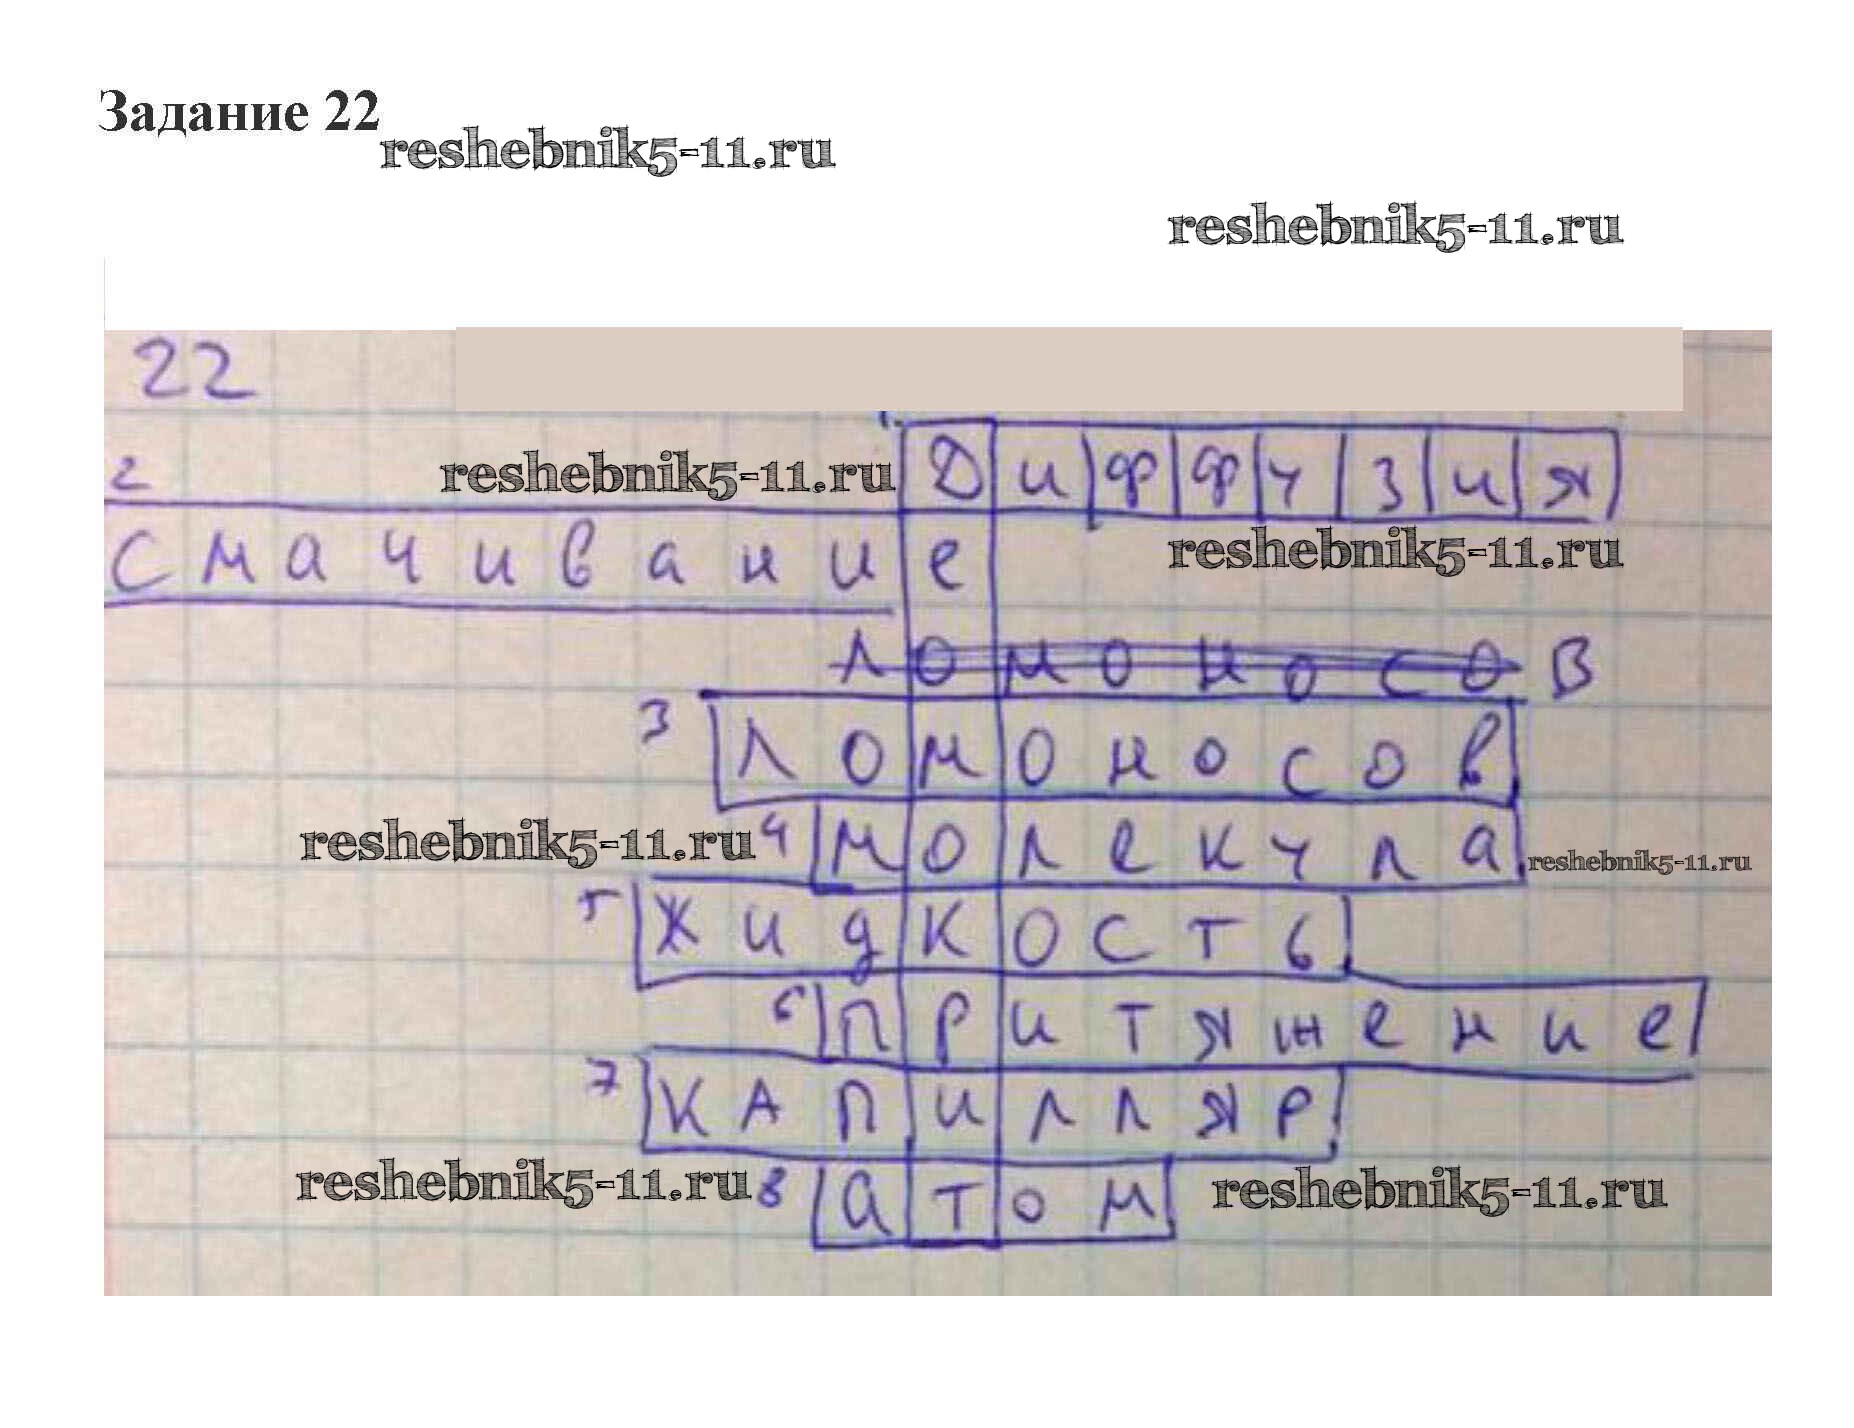 Задание 22
reshebnik5-11.ru
reshebnik5-11.ru
22
1. Диффузия
2 reshebnik5-11.ru
смачивание
reshebnik5-11.ru
ломоносов
3 Ломоносов
reshebnik5-11.ru 4 молекула reshebnik5-11.ru
5 жидкость
6 притяжение
7 капилляр
reshebnik5-11.ru 8 атом reshebnik5-11.ru